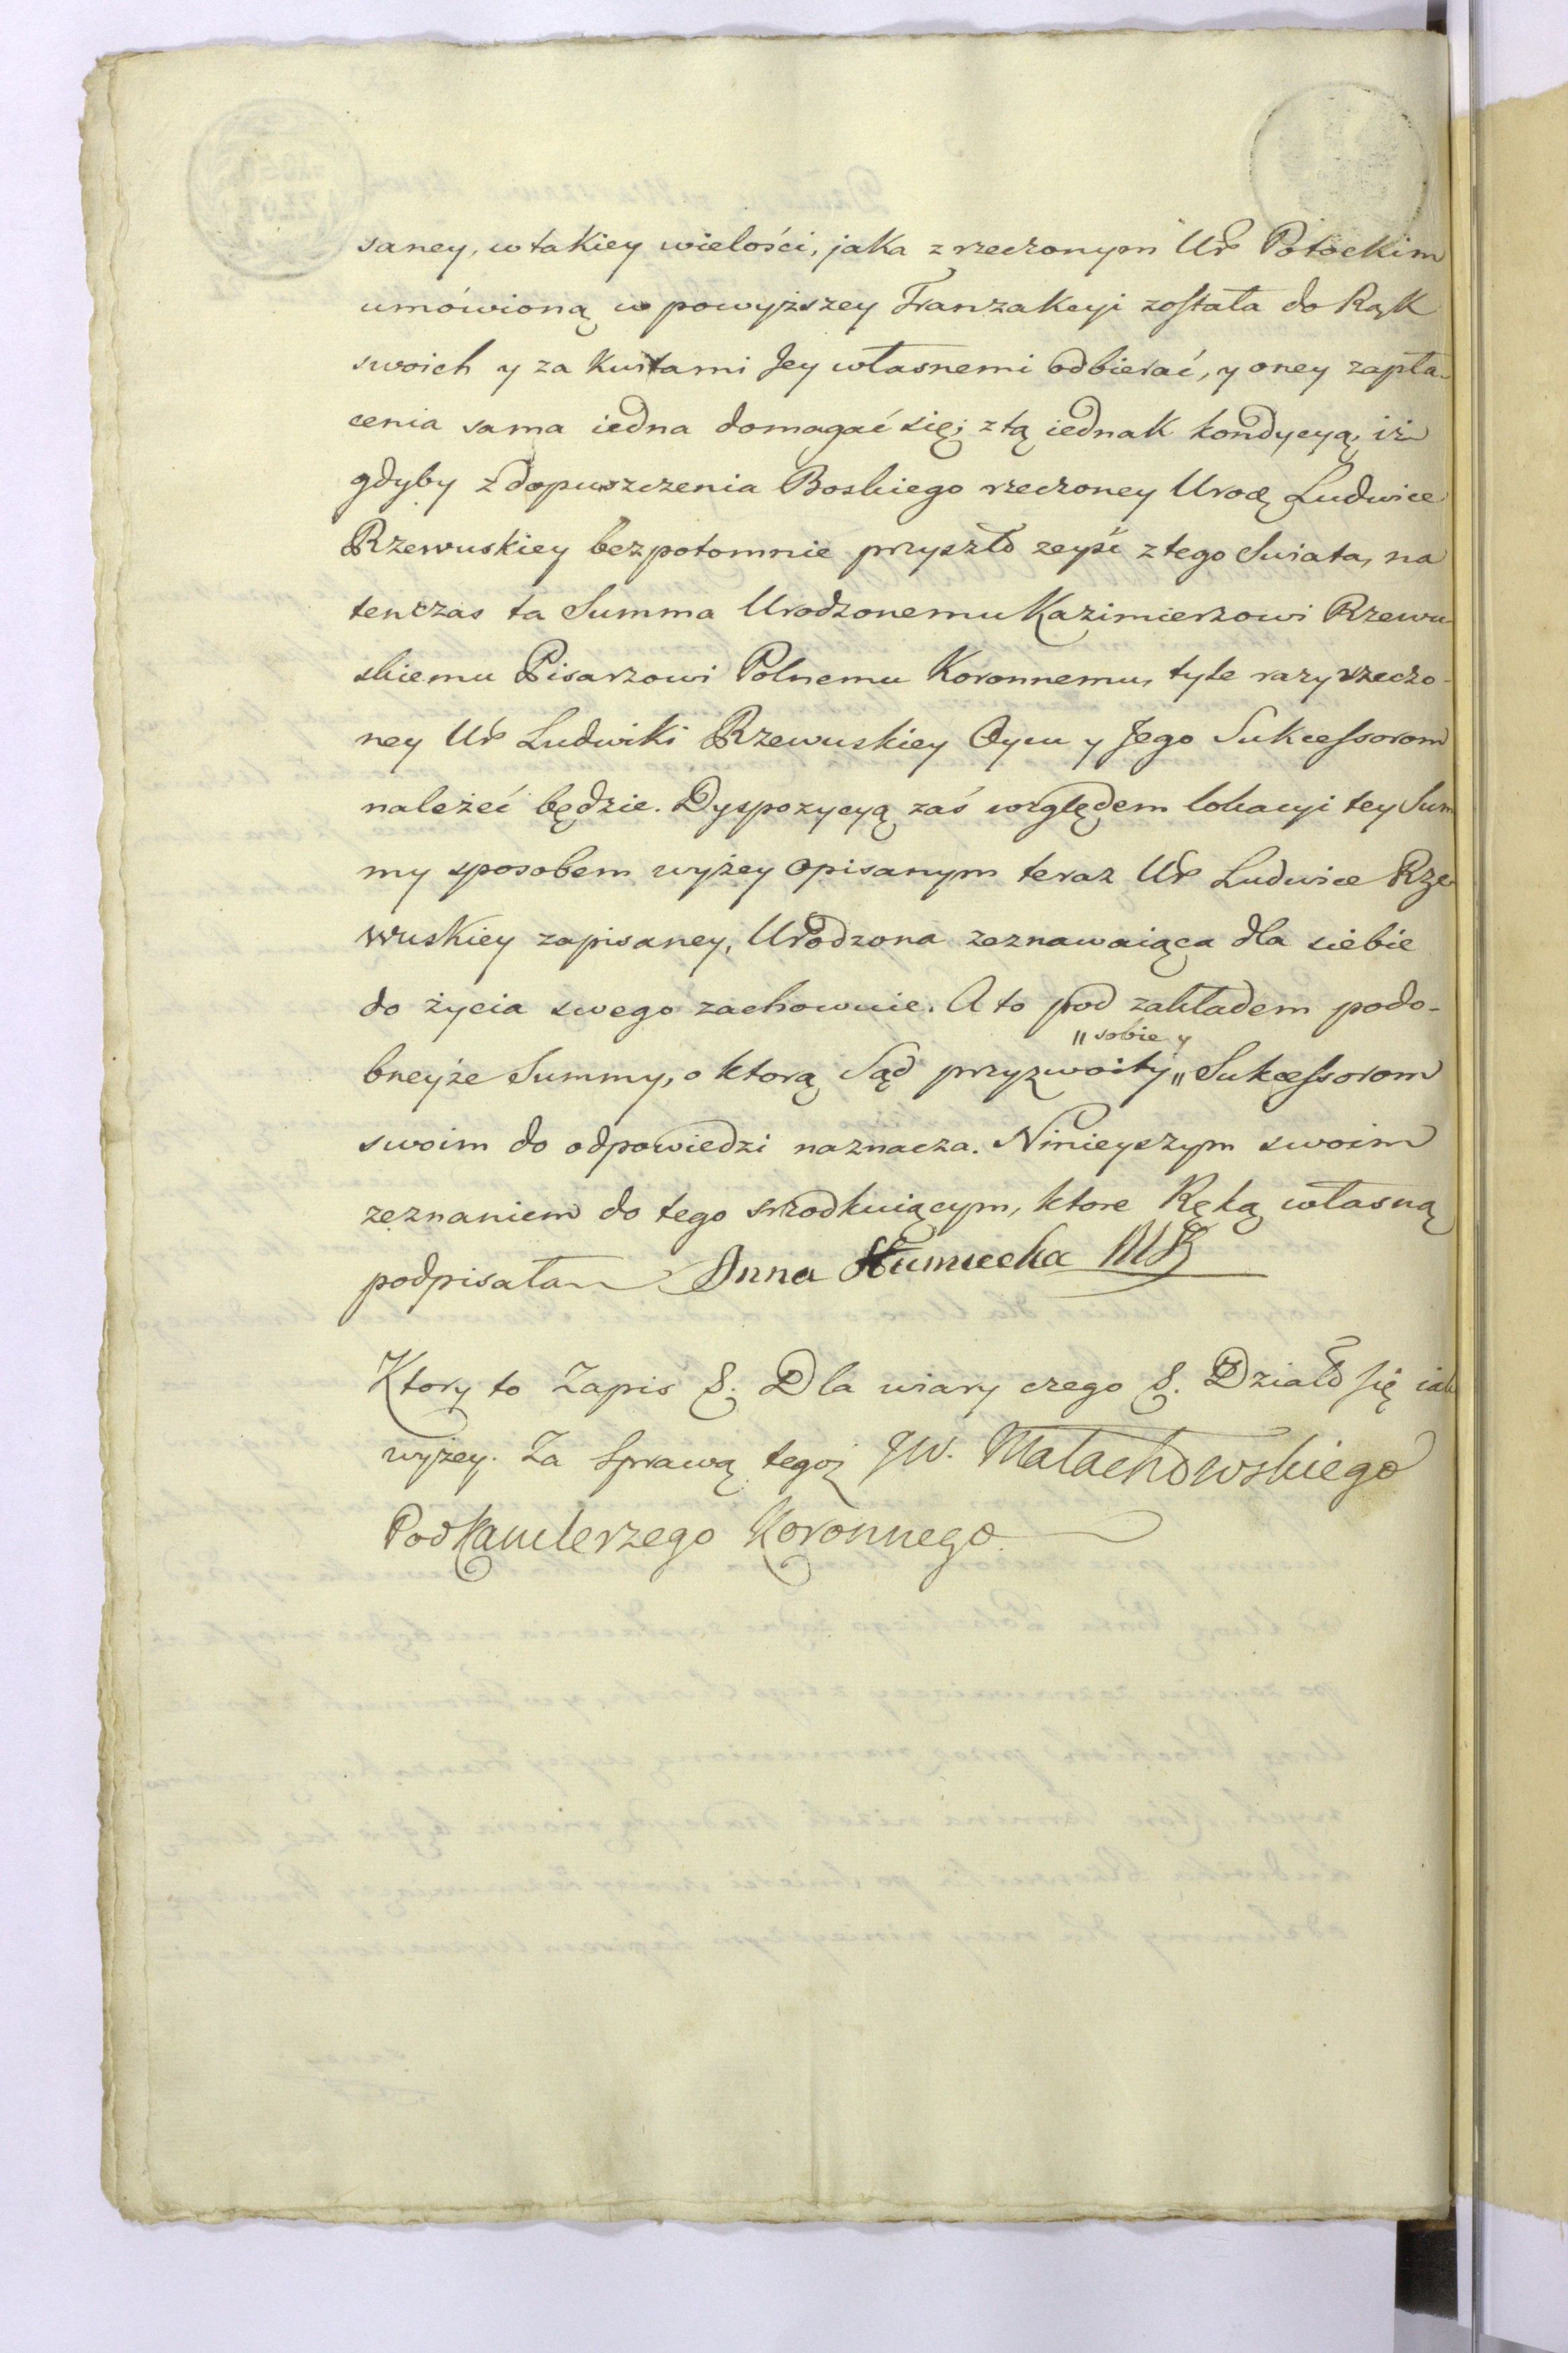 saney, w takiey wielości, jaka z rzeczonym Ur Potockim
umówioną w powyższey Tranzakcyi została do Rąk
swoich y za kwitami Jey własnemi odbierać, y oney zapła-
cenia sama iedna domagać się; z tą iednak kondycyą, iż
gdyby z dopuszczenia Boskiego rzeczoney Urodź Ludwice
Rzewuskiey bezpotomnie przyszło zeyśc z tego Swiata, na
tenczas ta Summa Urodzonemu Kazimierzowi Rzewu-
skiemu Pisarzowi Polnemu Koronnemu, tyle razy rzeczo-
ney Ur Ludwiki Rzewuskiey Oycu y Jego Sukcessorom
należeć będzie. Dyspozycyą zaś względem lokacyi tey Sum
my sposobem wyżey opisanym teraz Ur Ludwice Rze
wuskiey zapisaney, Urodzona zeznawaiąca dla siebie
do życia swego zachowuie. A to pod zakładem podo-
" sobie y
bneyże Summy, o ktorą Sąd przyzwoity " Sukcessorom
swoim do odpowiedzi naznacza. Ninieyszym swoim
zeznaniem do tego srzodkuiącym, ktore Ręką własną
podpisała Anna Humiecka MK
Ktory to Zapis &. Dla wiary czego &. Działo się iak
wyżey. Za Sprawą tegoż JW. Małachowskiego
Podkanclerzego Koronnego.